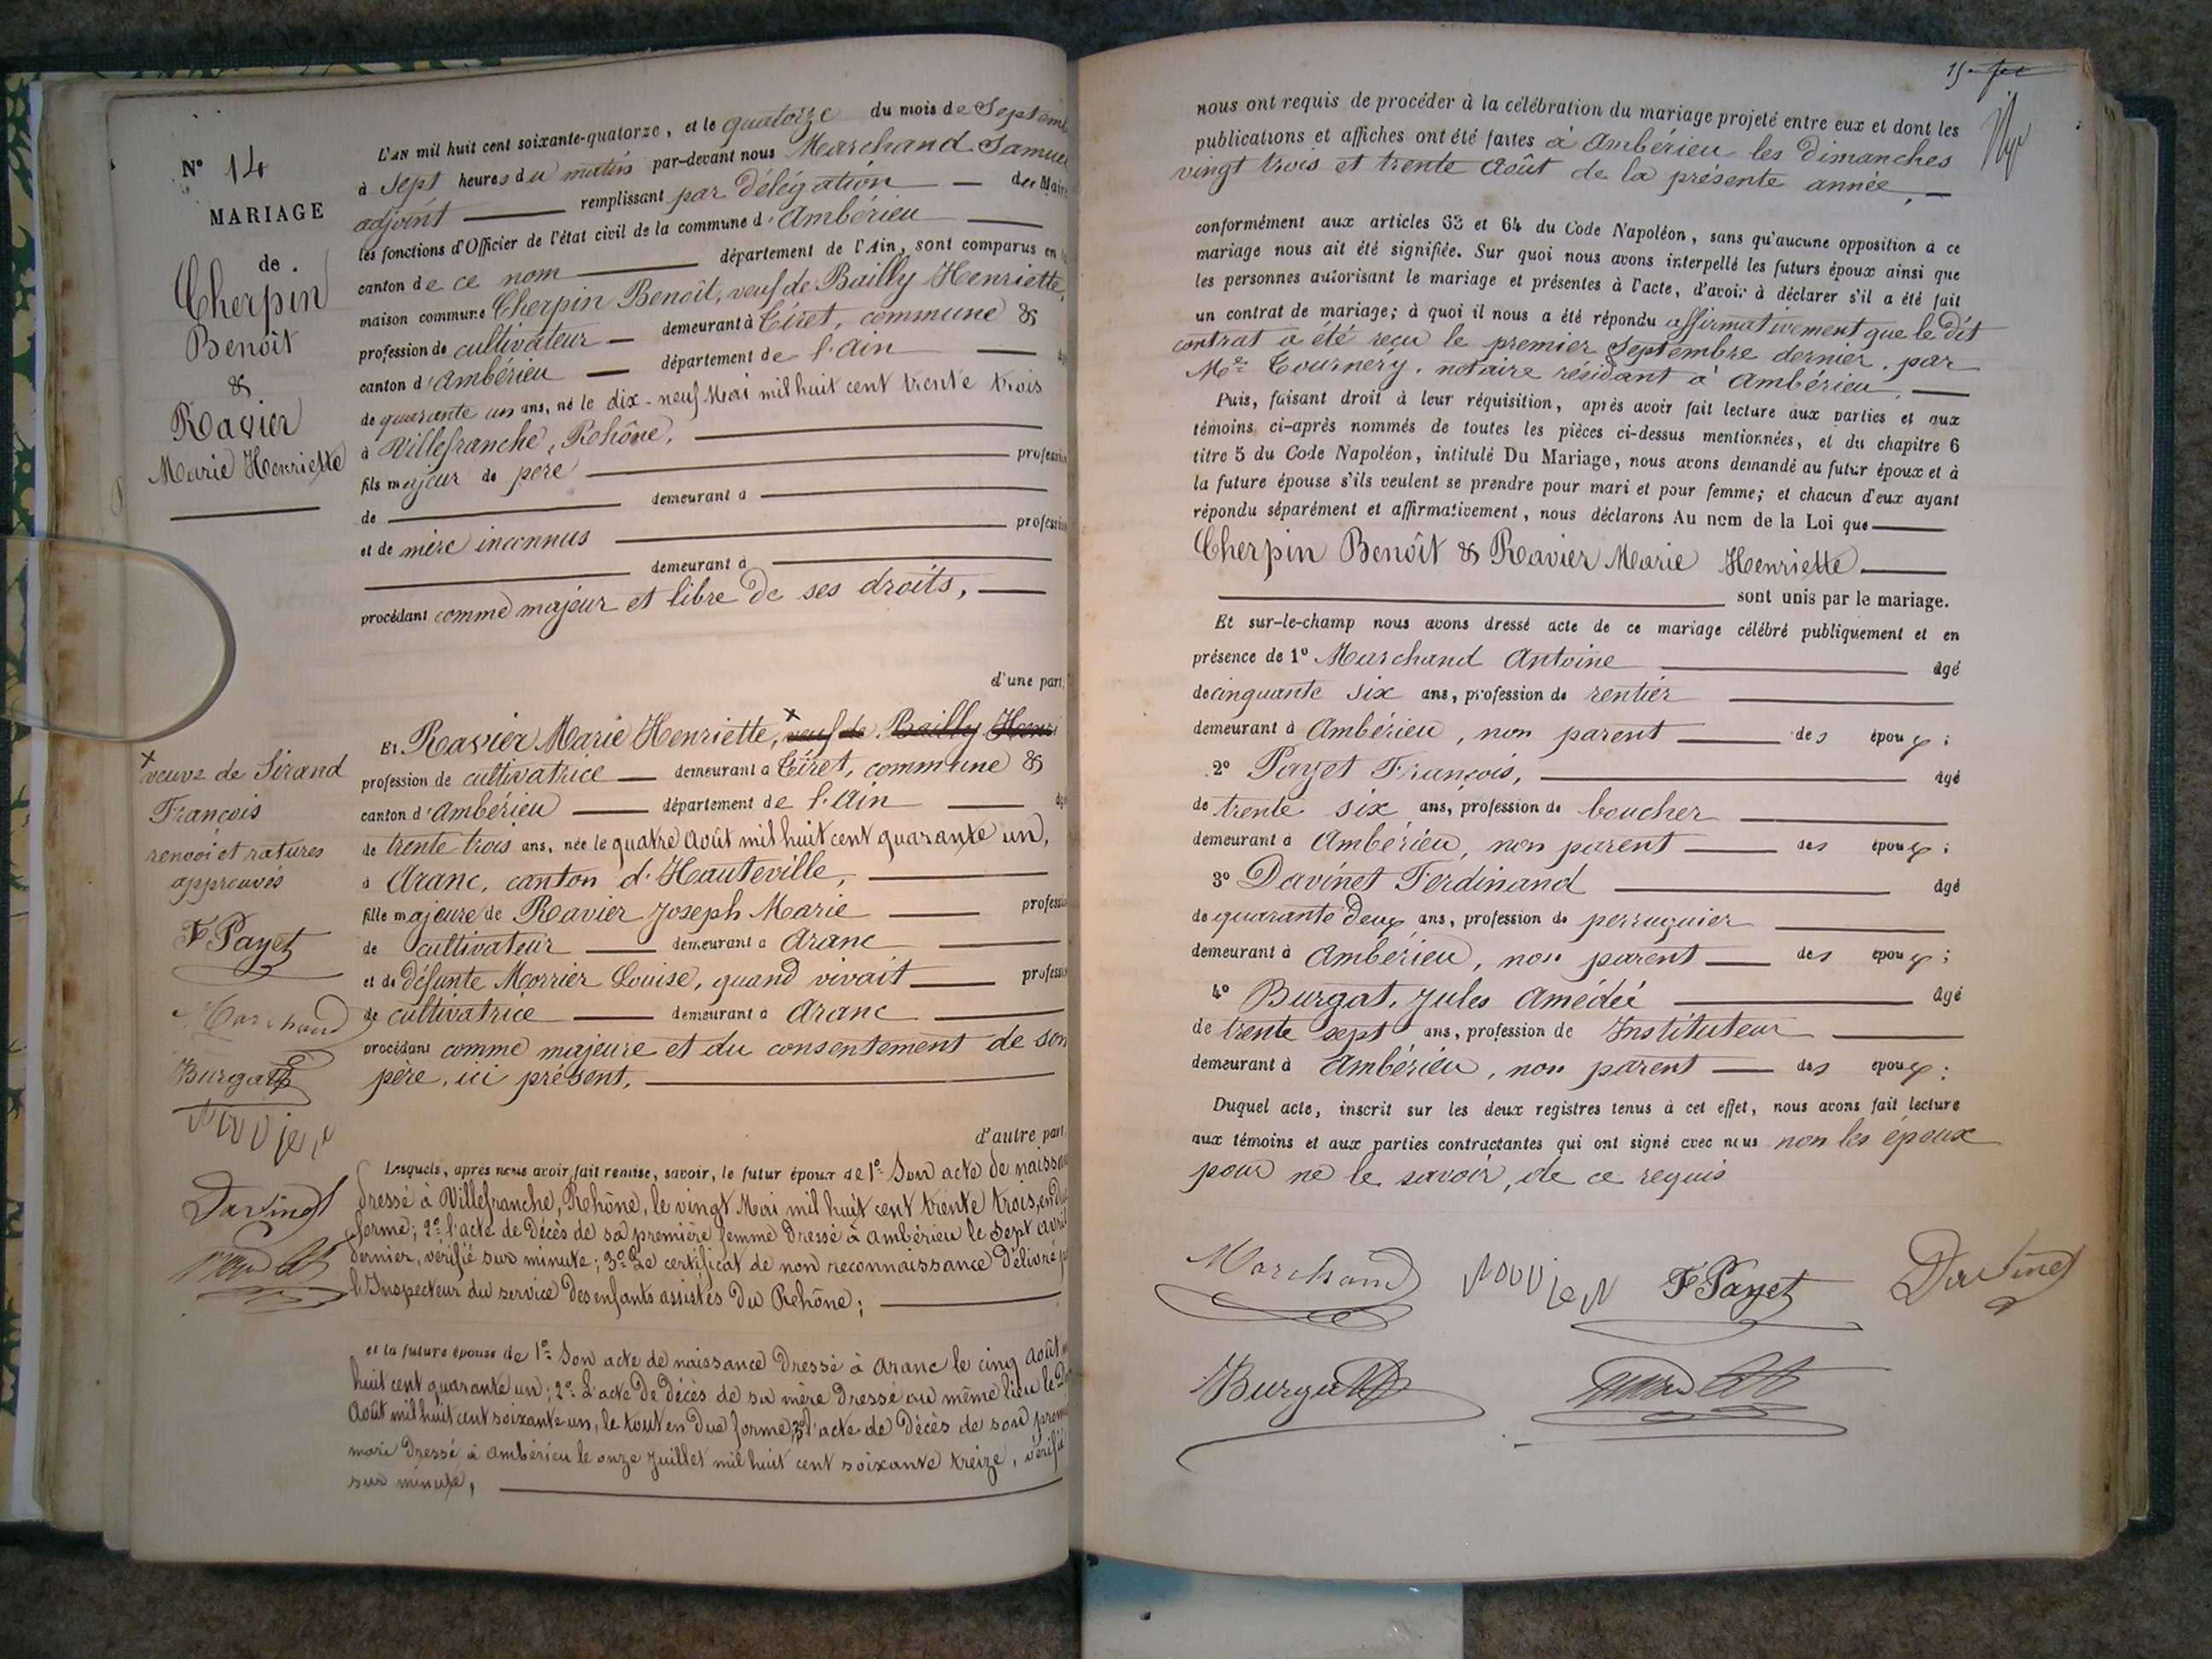 N° 14
MARIAGE
de
Cherpin
Benoît
&
Ravier
Marie Henriette
L'AN mil huit cent soixante-quatorze, et le quatorze du mois de Septemb
à Sept heures du matin par-devant nous Marchand Samuel
adjoint remplissant par Délégation du Maire
les fonctions d'Officier de l'état civil de la commune d'Ambérieu
canton de ce nom département de l'Ain, sont comparus en la
maison commune Cherpin Benoît, veuf de Bailly Henriette,
profession de cultivateur demeurant à Tiret, commune &
canton d'Ambérieu département de l'Ain
de quarante un ans, né le dix-neuf Mai mil huit cent trente trois
à Villefranche, Rhône,
fils majeur de père professio
de demeurant à
et de mère inconnus professio
demeurant à
procédant comme majeur et libre de ses droits,
d'une part,
Et Ravier Marie Henriette, × veuf de Bailly Henri
profession de cultivatrice demeurant à Tiret, commune &
canton d'Ambérieu département de l'Ain
de trente trois ans, née le quatre Août mil huit cent quarante un,
à Aranc, canton d'Hauteville,
fille majeure de Ravier Joseph Marie professi
de cultivateur demeurant à Aranc
et de défunte Morrier Louise, quand vivait professi
de cultivatrice demeurant à Aranc
procédant comme majeure et du consentement de son
père, ici présent,
d'autre part.
× veuve de Sirand
François
renvoi et ratures
approuvés
F Payet
Marchand
Burgat
Davinet
Lesquels, après nous avoir fait remise, savoir, le futur époux de 1° Son acte de naissan
dressé à Villefranche, Rhône, le vingt Mai mil huit cent trente trois, en due
forme; 2° l'acte de Décès de sa première femme Dressé à Ambérieu le sept avril
dernier, vérifié sur minute; 3° Le certificat de non reconnaissance Délivré p
l'Inspecteur du service Des enfants assistés du Rhône;
et la future épouse de 1° Son acte de naissance Dressé à Aranc le cinq Août
huit cent quarante un; 2° L'acte De Décès de sa mère Dressé au même lieu le
Août mil huit cent soixante un, le tout en Due forme, 3° l'acte de Décès de son prem
mari Dressé à Ambérieu le onze Juillet mil huit cent soixante treize, vérifié
sur minute,
nous ont requis de procéder à la célébration du mariage projeté entre eux et dont les
publications et affiches ont été faites à Ambérieu les Dimanches
vingt trois et trente Août de la présente année,
conformément aux articles 63 et 64 du Code Napoléon, sans qu'aucune opposition à ce
mariage nous ait été signifiée. Sur quoi nous avons interpellé les futurs époux ainsi que
les personnes autorisant le mariage et présentes à l'acte, d'avoir à déclarer s'il a été fait
un contrat de mariage; à quoi il nous a été répondu affirmativement que le dit
contrat a été reçu le premier Septembre dernier, par
Me Tournery, notaire résidant à Ambérieu,
Puis, faisant droit à leur réquisition, après avoir fait lecture aux parties et aux
témoins ci-après nommés de toutes les pièces ci-dessus mentionnées, et du chapitre 6
titre 5 du Code Napoléon, intitulé Du Mariage, nous avons demandé au futur époux et à
la future épouse s'ils veulent se prendre pour mari et pour femme; et chacun d'eux ayant
répondu séparément et affirmativement, nous déclarons Au nom de la Loi que
Cherpin Benoît & Ravier Marie Henriette
sont unis par le mariage.
Et sur-le-champ nous avons dressé acte de ce mariage célébré publiquement et en
présence de 1° Marchand Antoine âgé
de cinquante six ans, profession de rentier
demeurant à Ambérieu, non parent des époux;
2° Payet François, âgé
de trente six ans, profession de boucher
demeurant à Ambérieu, non parent des époux;
3° Davinet Ferdinand âgé
de quarante deux ans, profession de perruquier
demeurant à Ambérieu, non parent des époux;
4° Burgat, Jules Amédée âgé
de trente sept ans, profession de Instituteur
demeurant à Ambérieu, non parent des époux;
Duquel acte, inscrit sur les deux registres tenus à cet effet, nous avons fait lecture
aux témoins et aux parties contractantes qui ont signé avec nous non les époux
pour ne le savoir, de ce requis
Marchand F Payet Davinet
Burgat